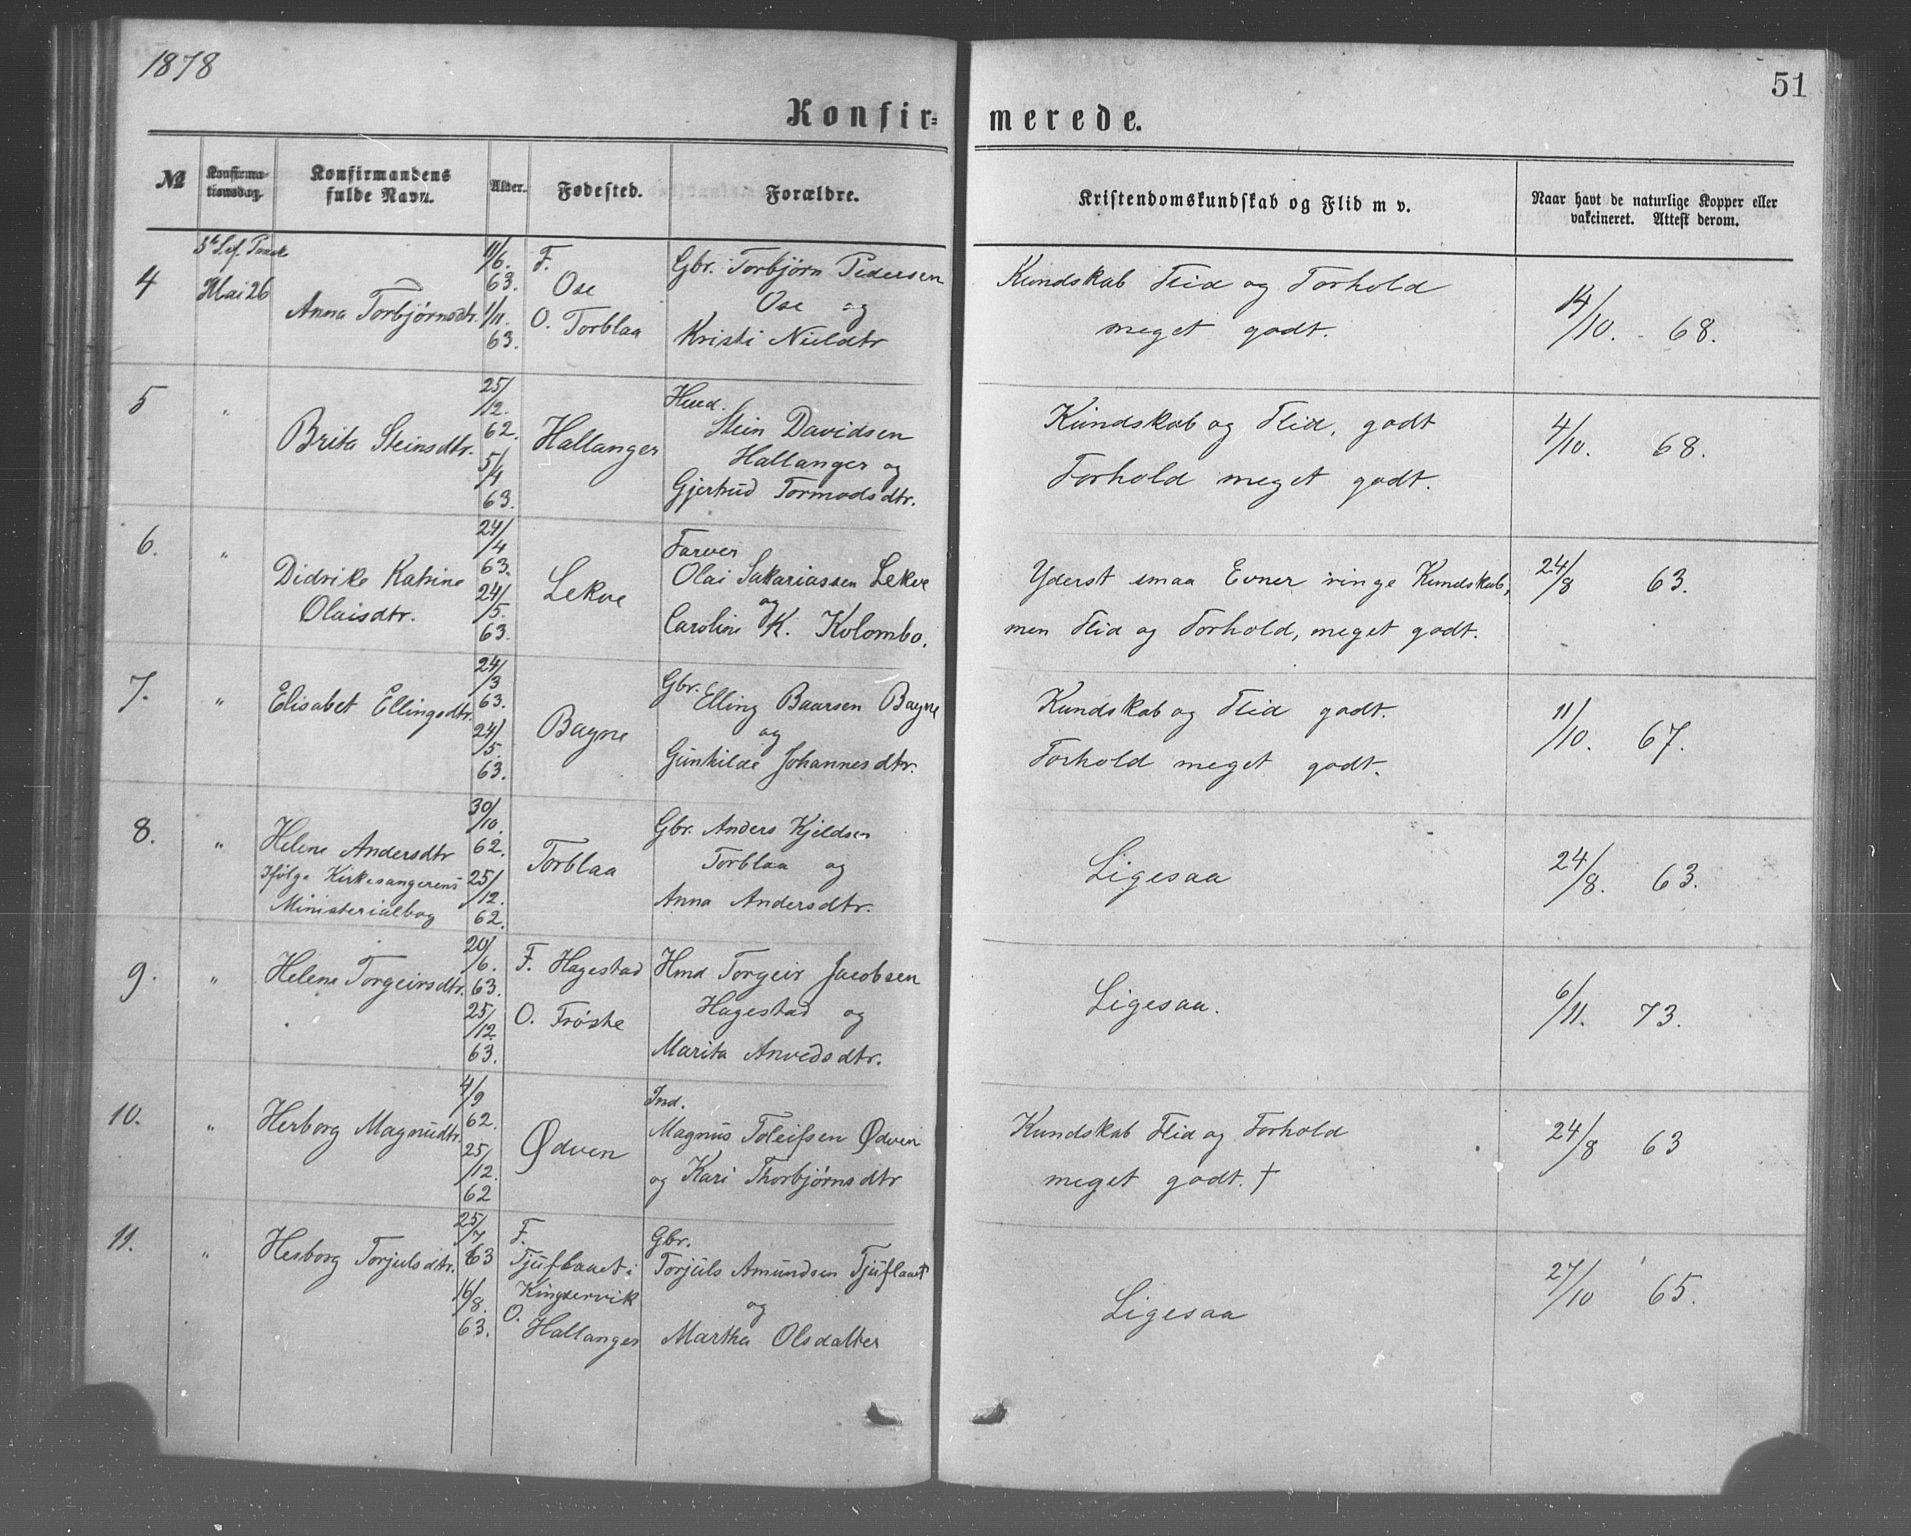 1878
51
Konfir=
merede.
№
Konfirma-
tionsdag.
Konfirmandens
fulde Navn.
Alder.
Fødested.
Forældre.
Kristendomskundskab og Flid m v.
Naar havt de naturlige Kopper eller
vakcineret. Attest derom.
4
Mai 26
Anna Torbjørnsdtr.
11/6.
63.
1/11.
63.
F.
Ose
O. Torblaa
Gbr. Torbjørn Pedersen
Ose og
Kristi Nielsdtr
Kundskab Flid og Forhold
meget godt.
14/10. 68.
5
"
Brita Steinsdtr.
25/12.
62.
5/4
63.
Hallanger
Husd.
Stein Davidsen
Hallanger og
Gjertrud Tormodsdtr.
Kundskab og Flid, godt
Forhold meget godt.
4/10. 68.
6.
"
Didrike Katrine
Olaisdtr.
24/4
63.
24/5.
63.
Lekve
Farver
Olai Sakariassen Lekve
og
Caroline K. Kolombo.
Yderst smaa Evner ringe Kundskab,
men Flid og Forhold, meget godt.
24/8 63.
7.
"
Elisabet Ellingsdtr.
24/3
63.
24/5.
63.
Bagne
Gbr. Elling Baarsen Bagne
og
Gunhilde Johannesdtr.
Kundskab og Flid godt.
Forhold meget godt.
11/10. 67.
8.
"
Helene Andersdtr
Ifølge Kirkesangerens
Ministerialbog
30/10.
62.
25/12.
62.
Torblaa
Gbr. Anders Kjeldsen
Torblaa og
Anna Andersdtr.
Ligesaa
24/8. 63.
9.
"
Helene Torgeirsdtr.
20/6.
63.
25/12.
63.
F. Hagestad
O. Trøste
Hmd Torgeir Jacobsen
Hagestad og
Marita Anvedsdtr.
Ligesaa.
6/11. 73.
10.
"
Herborg Magnusdtr.
4/9
62.
25/12.
62
Ødven
Ind.
Magnus Toleifsen Ødven
og Kari Thorbjørnsdtr
Kundskab Flid og Forhold
meget godt. †
24/8 63
11.
"
Herborg Torjulsdtr.
25/7
63
16/8.
63.
F.
Tjuflaaet i
Kingservik
O.
Hallanger
Gbr.
Torjuls Amundsen Tjuflaaet
og
Martha Olsdatter
Ligesaa
27/10 65.